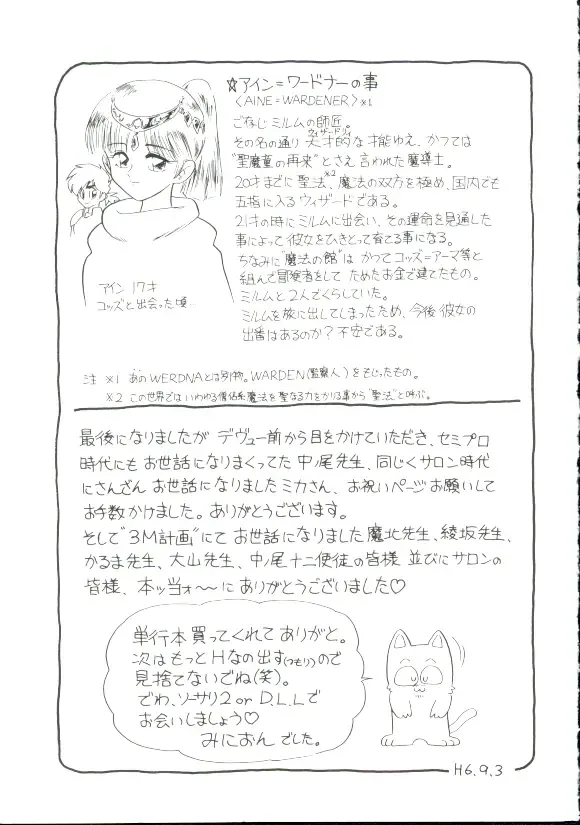 ☆アイン=ワードナーの事
〈AINE=WARDENER〉※1
ごぞんじ ミルムの師匠。
その名の通り天才的な才能ゆえ、かつては
ウィザードリィ
"聖魔童の再来"とさえ言われた魔導士。
20才までに聖法、※2魔法の双方を極め、国内でも
五指に入るウィザードである。
21才の時にミルムに出会い、その運命を見通した
事によって彼女をひきとって育てる事になる。
ちなみに"魔法の館"はかつてコッズ=アーマ等と
組んで冒険者をして ためたお金で建てたもの。
ミルムと2人でくらしていた。
ミルムを旅に出してしまったため、今後彼女の
出番はあるのか?不安である。
アイン 17才
コッズと出会った頃
注 ※1 あのWERDNAとは別物。WARDEN(監察人)をもじったもの。
※2 この世界ではいわゆる僧侶系魔法を聖なる力をかりる事から"聖法"と呼ぶ。
最後になりましたが デヴュー前から目をかけていただき、セミプロ
時代にも お世話になりまくってた 中ノ尾先生、同じくサロン時代
にさんざん お世話になりましたミカさん、お祝いページお願いして
お手数かけました。ありがとうございます。
そして"3M計画"にて お世話になりました 魔北先生、綾坂先生、
かるま先生、大山先生、中ノ尾十二使徒の皆様 並びにサロンの
皆様、本ッ当ォ〜〜に ありがとうございました♡
単行本買ってくれて ありがと。
次はもっとHなの出す(つもり)ので
見捨てないでね(笑)。
でわ、ソーサリ2 or D.L.Lで
お会いしましょう♡
みにおん でした。
H6.9.3